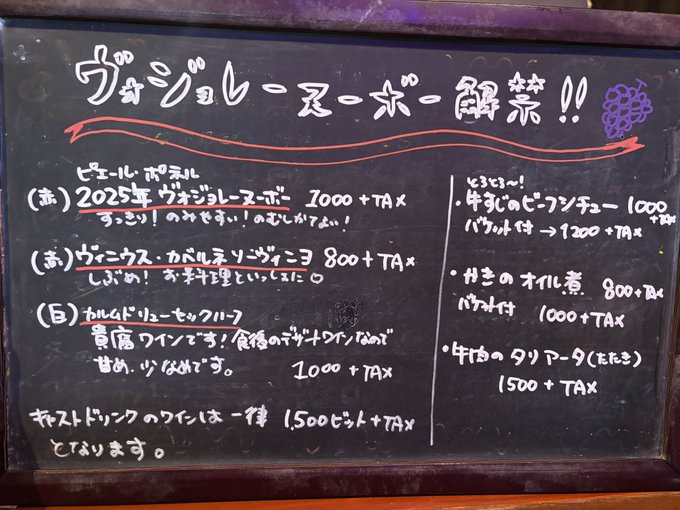 ヴォジョレーヌーボー解禁!!
ピエール・ポネル
(赤) 2025年 ヴォジョレーヌーボー 1000+TAX
すっきり!のみやすい!のむしかてない!
(赤) ヴィニウス・カベルネソーヴィニヨ 800+TAX
しぶめ!お料理といっしょに♡
(白) カルムドリューセックハーフ
貴腐ワインです!食後のデザートワインなので
甘め、少なめです。 1000+TAX
キャストドリンクのワインは一律 1,500ビット+TAX
となります。
とろとろ〜!
・牛すじのビーフシチュー 1000+TAX
バケット付→1200+TAX
・かきのオイル煮 800+TAX
バケット付 1000+TAX
・牛肉のタリアータ(たたき)
1500+TAX